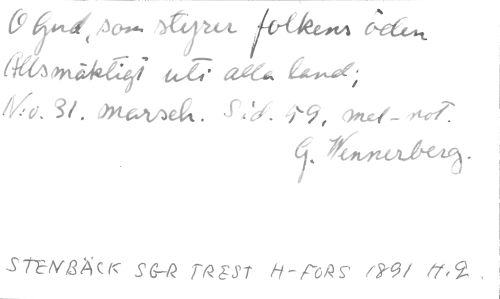 O Gud, som styrer folkens öden
Allsmäktigt uti alla land;
N:o. 31. marsch. Sid. 59, mel-not.
G. Wennerberg.
STENBÄCK SGR TREST H-FORS 1891 H.2.